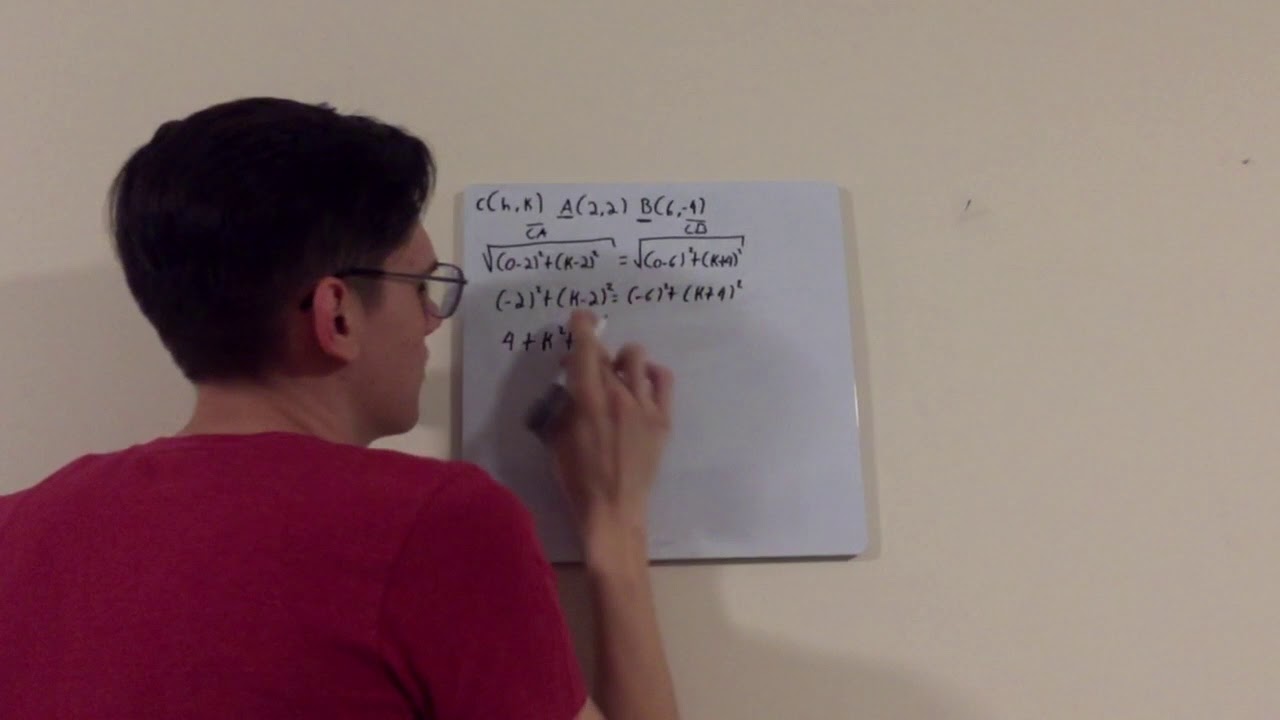 C(h,K) A(2,2) B(6,-4)
CA CB
√(0-2)²+(K-2)² = √(0-6)²+(K+4)²
(-2)²+(K-2)²=(-6)²+(K+4)²
4+K²+